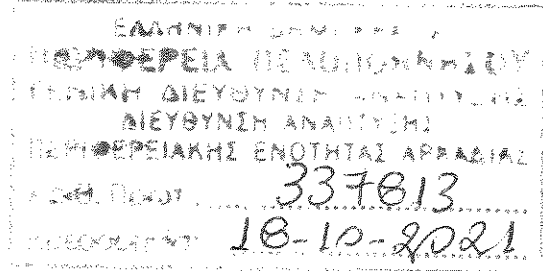 ΕΛΛΗΝΙΚΗ
ΠΕΡΙΦΕΡΕΙΑ ΠΕΛΟΠΟΝΝΗΣΟΥ
ΓΕΝΙΚΗ ΔΙΕΥΘΥΝΣΗ ΑΝΑΠΤΥΞΗΣ
ΔΙΕΥΘΥΝΣΗ ΑΝΑΠΤΥΞΗΣ
ΠΕΡΙΦΕΡΕΙΑΚΗΣ ΕΝΟΤΗΤΑΣ ΑΡΚΑΔΙΑΣ
337813
18-10-2021